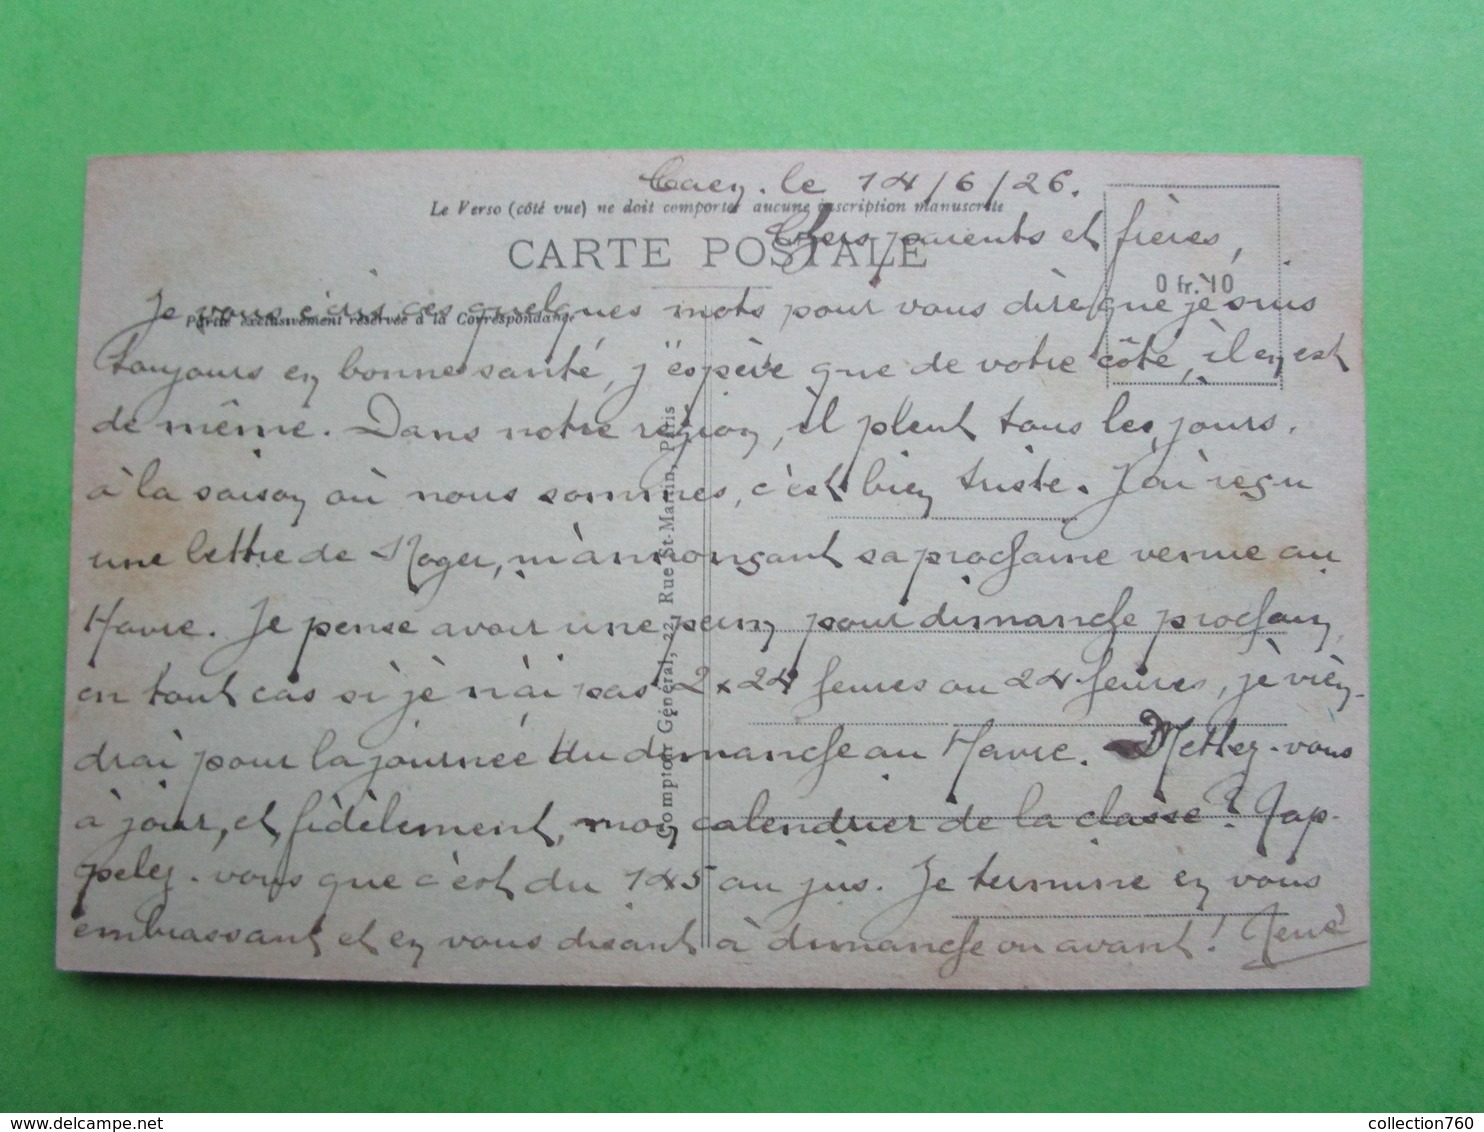 Caen, le 14/6/26.
Le Verso (côté vue) ne doit comporter aucune inscription manuscrite
Chers parents et frères,
CARTE POSTALE
0 fr. 10
Je vous écris ces quelques mots pour vous dire que je suis
Partie exclusivement réservée à la Correspondance
toujours en bonne santé, j'espère que de votre côté, il en est
de même. Dans notre région, il pleut tous les jours.
à la saison où nous sommes, c'est bien triste. J'ai reçu
une lettre de Roger, m'annonçant sa prochaine venue au
Havre. Je pense avoir une perm pour dimanche prochain,
en tout cas si je n'ai pas 2 x 24 heures ou 24 heures, je vien-
drai pour la journée du dimanche au Havre. Mettez-vous
à jour, et fidèlement, mon calendrier de la classe? Rap-
pelez-vous que c'est du 145 au jus. Je termine en vous
embrassant et en vous disant à dimanche ou avant! René
Comptoir Général, 22, Rue St-Martin, Paris
www.delcampe.net
collection760